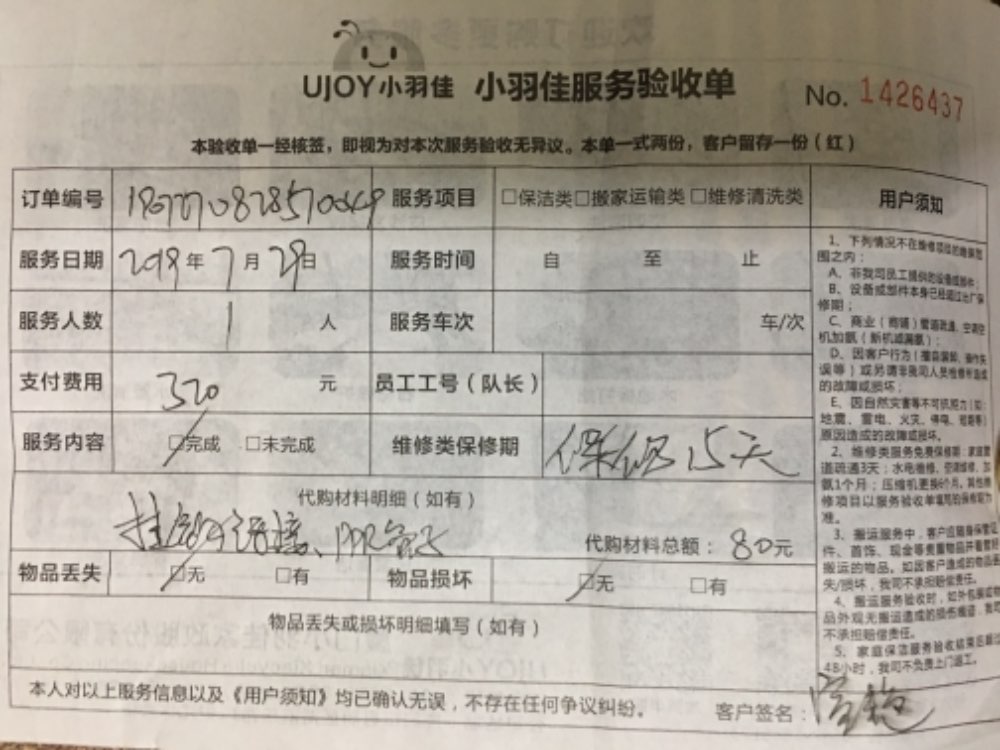 UJOY小羽佳 小羽佳服务验收单 No. 1426437
本验收单一经核签，即视为对本次服务验收无异议。本单一式两份，客户留存一份（红）
订单编号 服务项目 □保洁类□搬家运输类 □维修清洗类
服务日期 2018年7月28日 服务时间 自 至 止
服务人数 1 人 服务车次 车/次
支付费用 320 元 员工工号（队长）
服务内容 □完成 □未完成 维修类保修期 保修15天
代购材料明细（如有）
PPR管子
代购材料总额：80元
物品丢失 □无 □有 物品损坏 □无 □有
物品丢失或损坏明细填写（如有）
本人对以上服务信息以及《用户须知》均已确认无误，不存在任何争议纠纷。
客户签名：
用户须知
1、下列情况不在维修项目的维保范
围之内：
A、非我司员工提供的设备或部件；
B、设备或部件本身已经超过出厂保
修期；
C、商业（商铺）管道疏通，空调空
机加氨（新机或漏氨）；
D、因客户行为（擅自装卸、操作失
误等）或另请非我司人员检修所造成
的故障或损坏；
E、因自然灾害等不可抗原力（如：
地震、雷电、火灾、停电、短路等）
原因造成的故障或损坏。
2、维修类服务免费保修期：家庭管
道疏通3天；水电维修、空调维修、加
氨1个月；压缩机更换6个月。其他维
修项目以服务验收单填写的保修期为
准。
3、搬运服务中，客户应随身保管证
件、首饰、现金等贵重物品并看管
搬运的物品。如因客户造成的物品丢
失/损坏，我司不承担赔偿责任。
4、搬运服务验收时，如外包装或物
品外观无搬运造成的损伤痕迹，我司
不承担赔偿责任。
5、家庭保洁服务验收结束后超过
48小时，我司不负责上门返工。